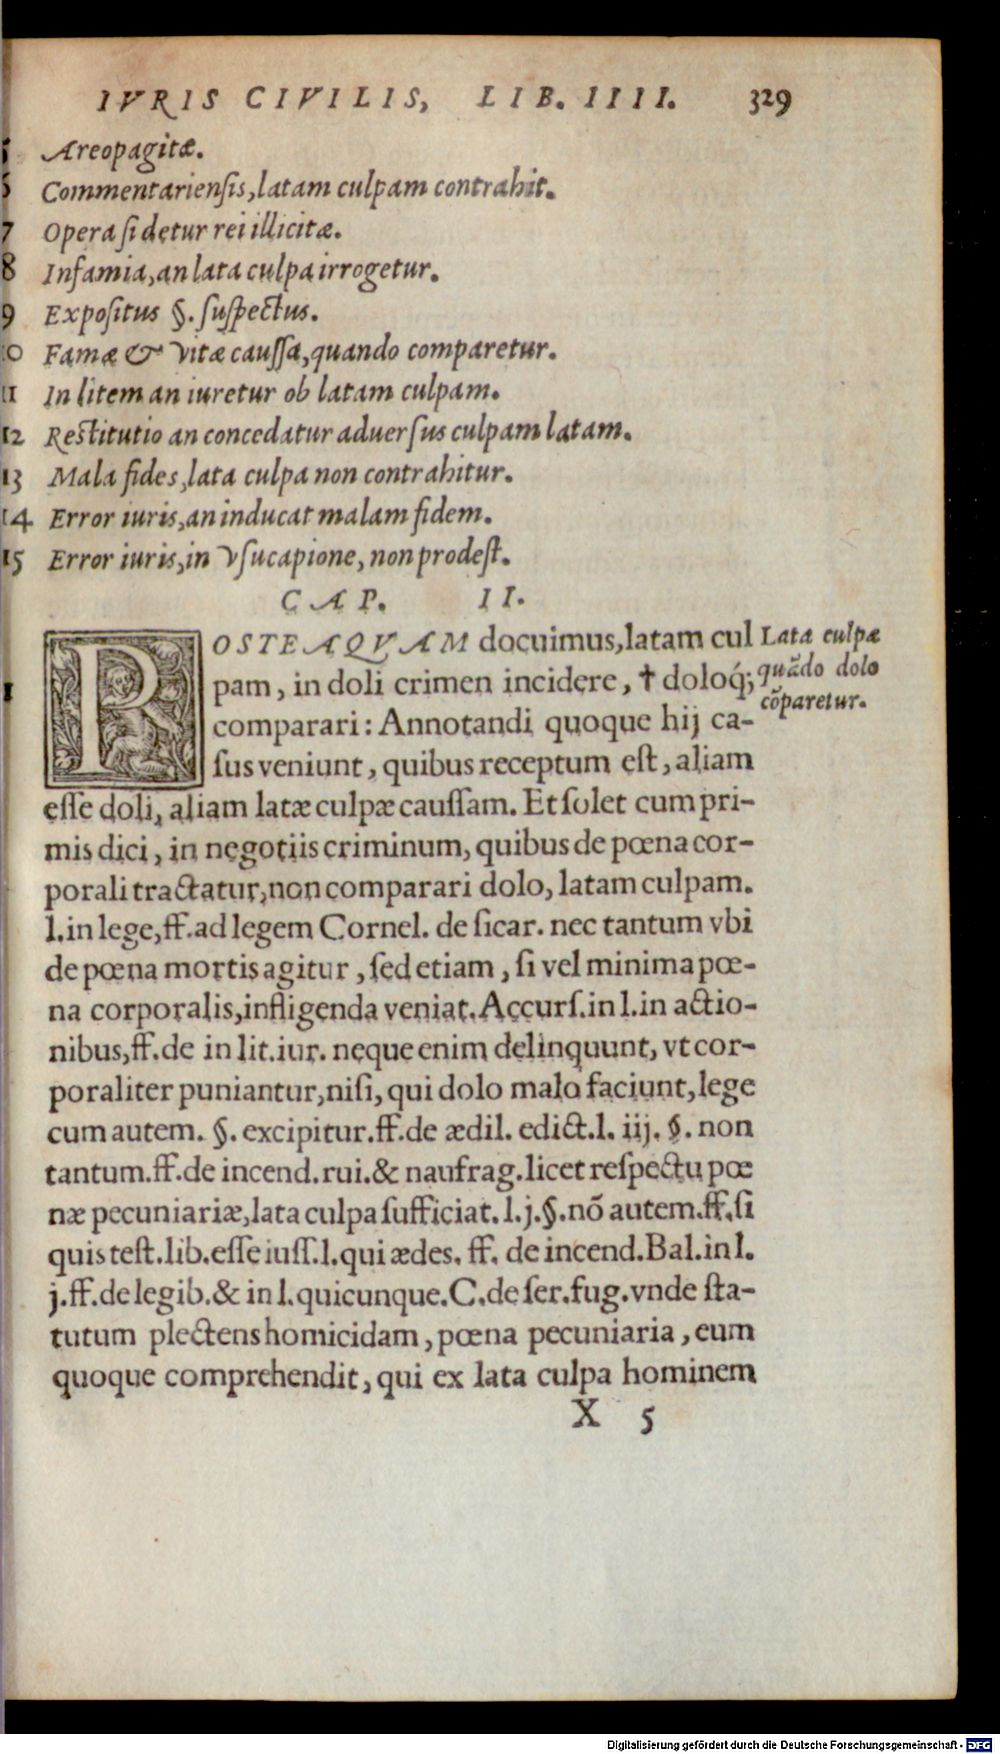 IVRIS CIVILIS, LIB. IIII. 329
5 Areopagitæ.
6 Commentariensis, latam culpam contrahit.
7 Opera si detur rei illicitæ.
8 Infamia, an lata culpa irrogetur.
9 Expositus §. suspectus.
10 Famæ & vitæ caussa, quando comparetur.
11 In litem an iuretur ob latam culpam.
12 Restitutio an concedatur aduersus culpam latam.
13 Mala fides, lata culpa non contrahitur.
14 Error iuris, an inducat malam fidem.
15 Error iuris, in vsucapione, non prodest.
CAP. II.
POSTEAQVAM docuimus, latam cul
pam, in doli crimen incidere, † doloq́;
comparari: Annotandi quoque hij ca-
sus veniunt, quibus receptum est, aliam
esse doli, aliam latæ culpæ caussam. Et solet cum pri-
mis dici, in negotiis criminum, quibus de pœna cor-
porali tractatur, non comparari dolo, latam culpam.
l. in lege, ff. ad legem Cornel. de sicar. nec tantum vbi
de pœna mortis agitur, sed etiam, si vel minima pœ-
na corporalis, infligenda veniat. Accurs. in l. in actio-
nibus, ff. de in lit. iur. neque enim delinquunt, vt cor-
poraliter puniantur, nisi, qui dolo malo faciunt, lege
cum autem. §. excipitur. ff. de ædil. edict. l. iij. §. non
tantum. ff. de incend. rui. & naufrag. licet respectu pœ
næ pecuniariæ, lata culpa sufficiat. l. j. §. nō autem. ff. si
quis test. lib. esse iuss. l. qui ædes. ff. de incend. Bal. in l.
j. ff. de legib. & in l. quicunque. C. de ser. fug. vnde sta-
tutum plectens homicidam, pœna pecuniaria, eum
quoque comprehendit, qui ex lata culpa hominem
X 5
Lata culpæ
quādo dolo
cōparetur.
1
Digitalisierung gefördert durch die Deutsche Forschungsgemeinschaft - DFG